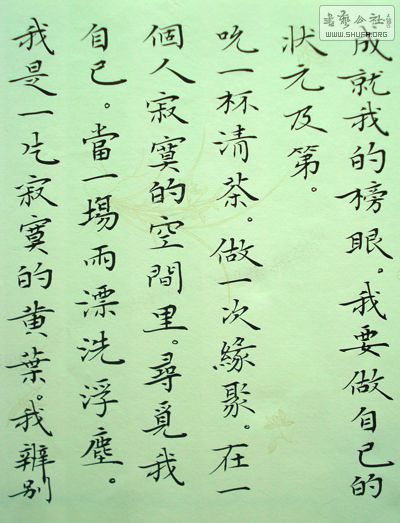 成就我的榜眼。我要做自己的
狀元及第。
吃一杯清茶。做一次緣聚。在一
個人寂寞的空間里。尋覓我
自己。當一場雨漂洗浮塵。
我是一片寂寞的黄葉。我辨别
WWW.SHUFA.ORG